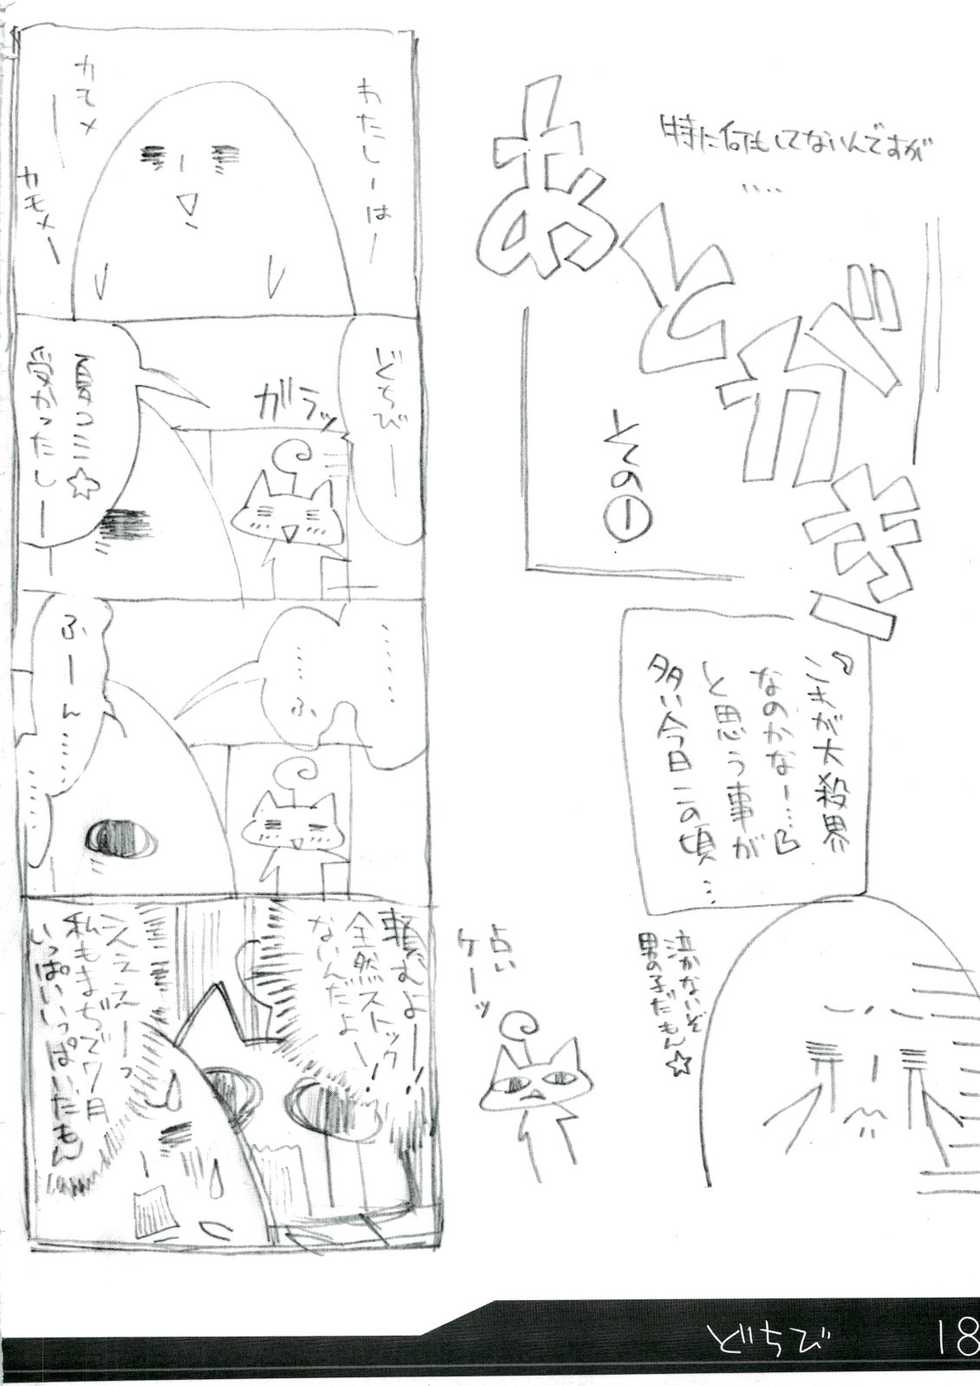 特に何もしてないんですが
‥‥
あとがき
その①
『これが大殺界
なのかなー…』
と思う事が
多い今日この頃…
泣かないぞ
男の子だもん☆
占い
ケーッ
わたしーはー
カモメー
カモメー
どちびー
ガラッ
夏コミ☆
受かったしー
………
……ふ
ふーん……
……
全然ストック
ないんだよー!
シえええーっ
私もまぢで7月
いっぱいいっぱいだもん
どちび
18